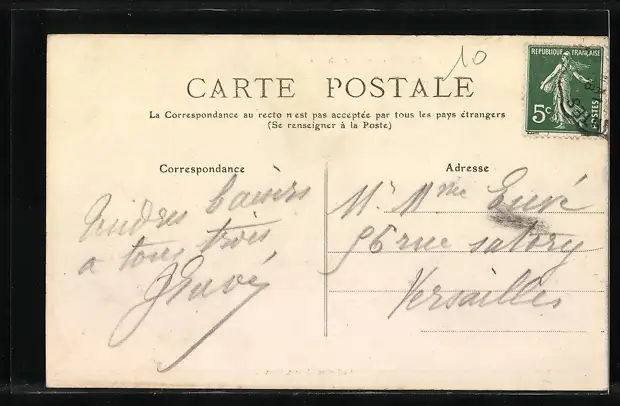 10
CARTE POSTALE
REPUBLIQUE FRANÇAISE
5c
POSTES
La Correspondance au recto n'est pas acceptée par tous les pays étrangers
(Se renseigner à la Poste)
Correspondance
Tendres baisers
a tous trois
J Euvé
Adresse
Mr Mme Euvé
96 rue satory
Versailles